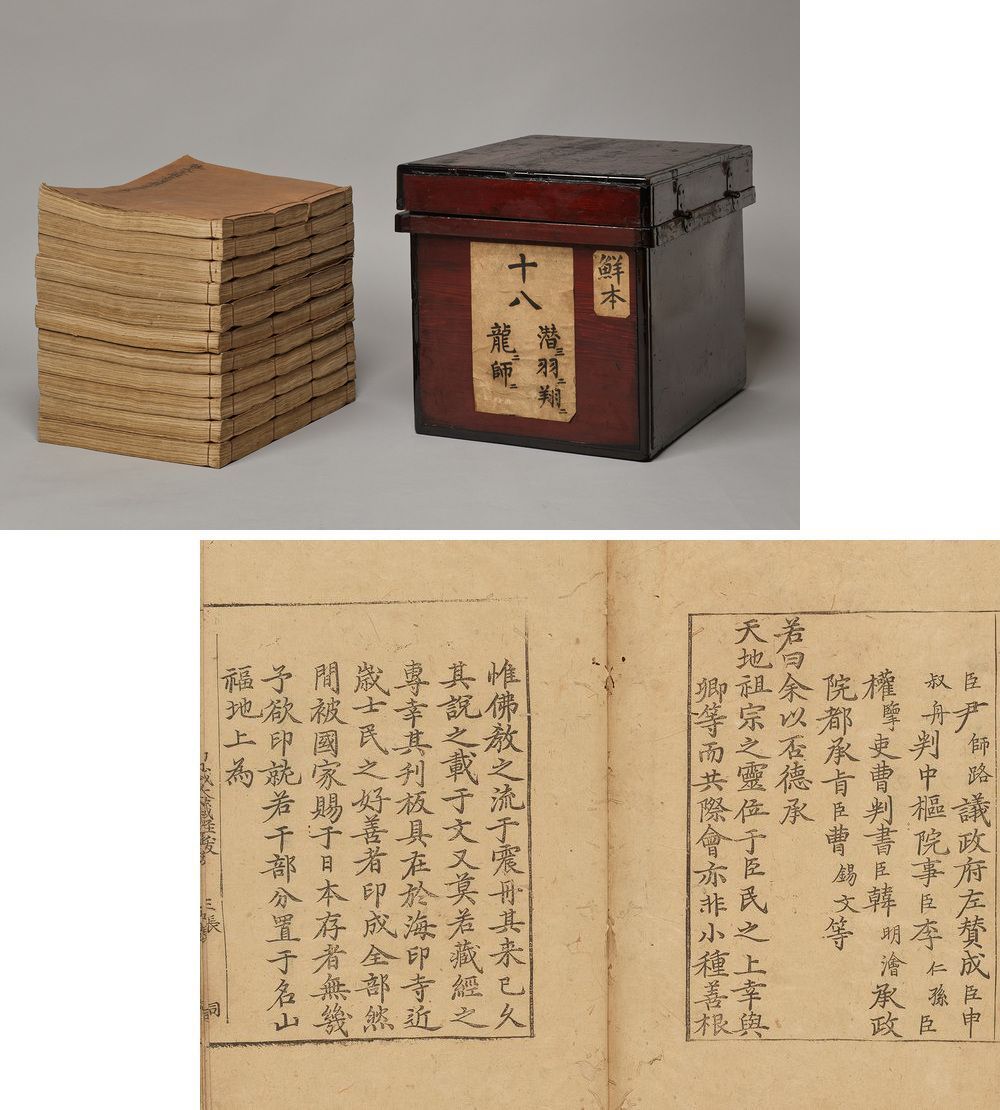 鮮本
十八
潜三羽二翔二
龍二師二
臣尹師路議政府左賛成臣申
叔舟判中樞院事臣李仁孫臣
權擥吏曹判書臣韓明澮承政
院都承旨臣曹錫文等
若曰余以否德承
天地祖宗之靈位于臣民之上幸與
卿等而共際會亦非小種善根
惟佛敎之流于震冊其来已久
其說之載于文又莫若藏經之
專幸其刊板具在於海印寺近
歲士民之好善者印成全部然
間被國家賜于日本存者無幾
予欲印就若干部分置于名山
福地上為
三張